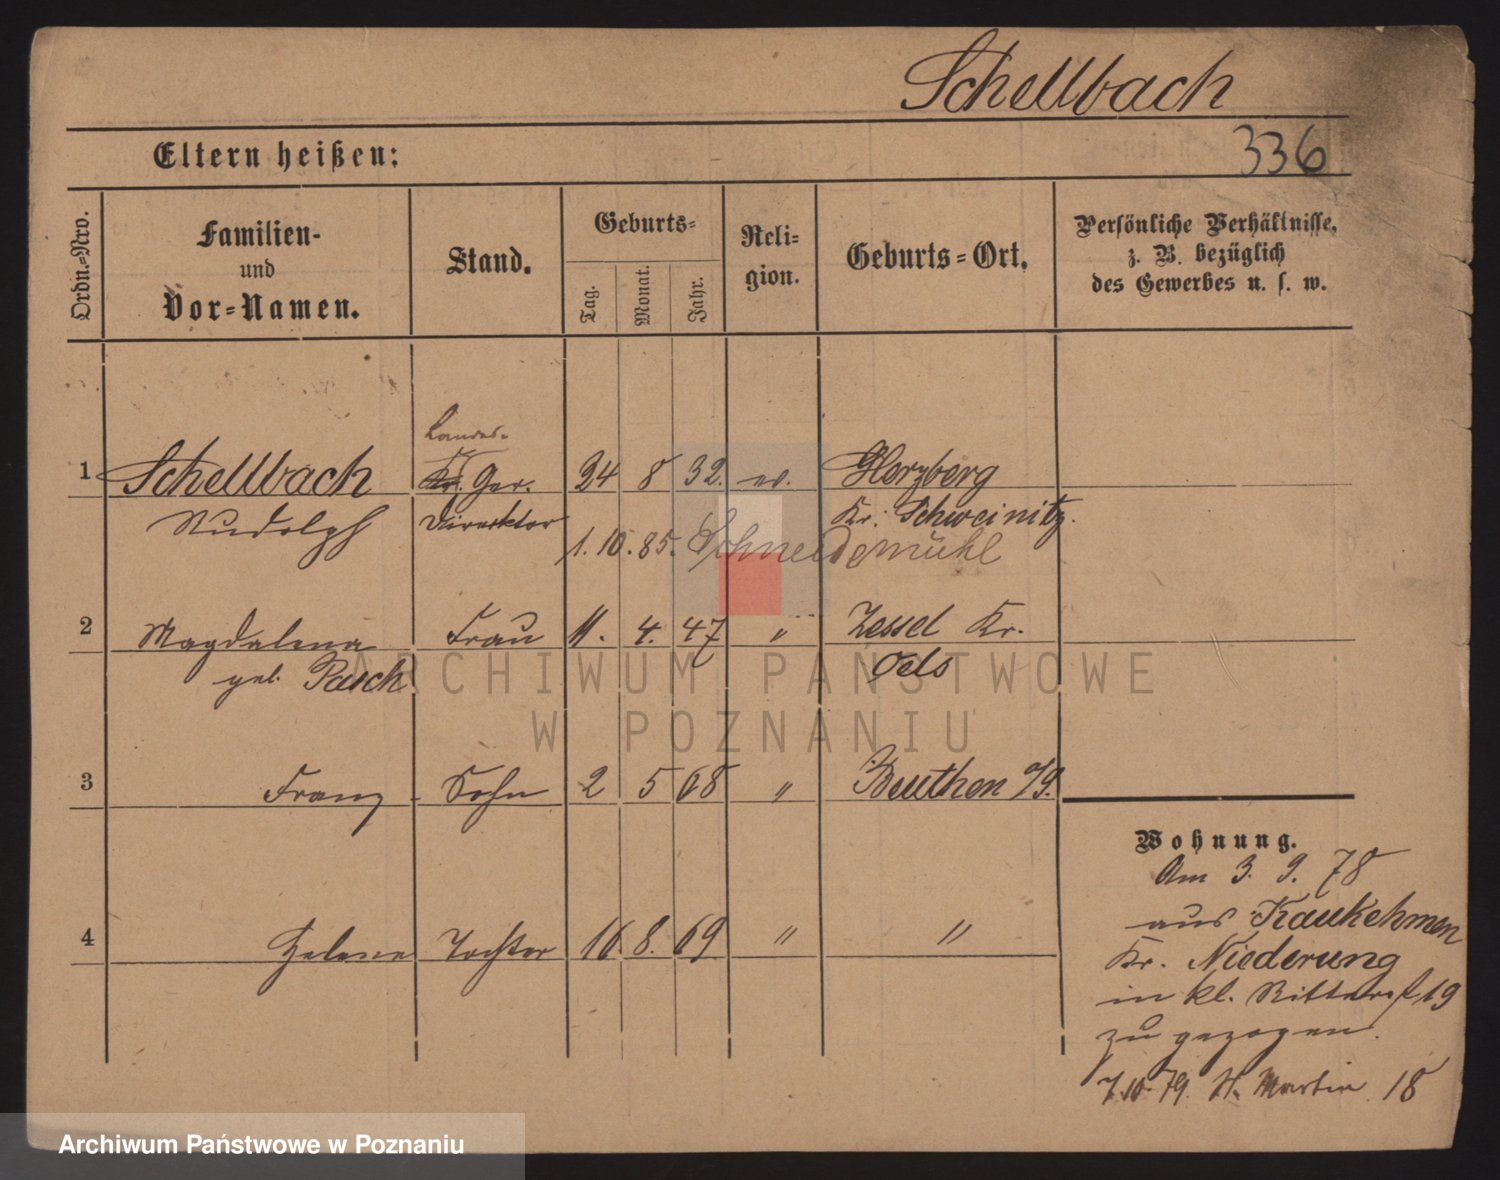 Schellbach
336
Eltern heißen:
Ordn.-Nro.
Familien-
und
Vor-Namen.
Stand.
Geburts-
Tag.
Monat.
Jahr.
Reli-
gion.
Geburts-Ort.
Persönliche Verhältnisse,
z. B. bezüglich
des Gewerbes u. s. w.
Landes-
1 Schellbach Kr. Ger. 24 8 32. ev. Herzberg
Rudolph Direktor Kr. Schweinitz.
1. 10. 85. Schneidemühl
2 Magdalena Frau 11. 4. 47 " Zessel Kr.
geb. Pasch Oels
3 Franz Sohn 2 5 68 " Beuthen
4 Helene Tochter 16 8. 69 " "
Wohnung.
Am 3. 9. 78
aus Kaukehmen
Kr. Niederung
in kl. Ritterst 19
zu gezogen.
7.10.79. St. Martin 18
ARCHIWUM PAŃSTWOWE
W POZNANIU
Archiwum Państwowe w Poznaniu